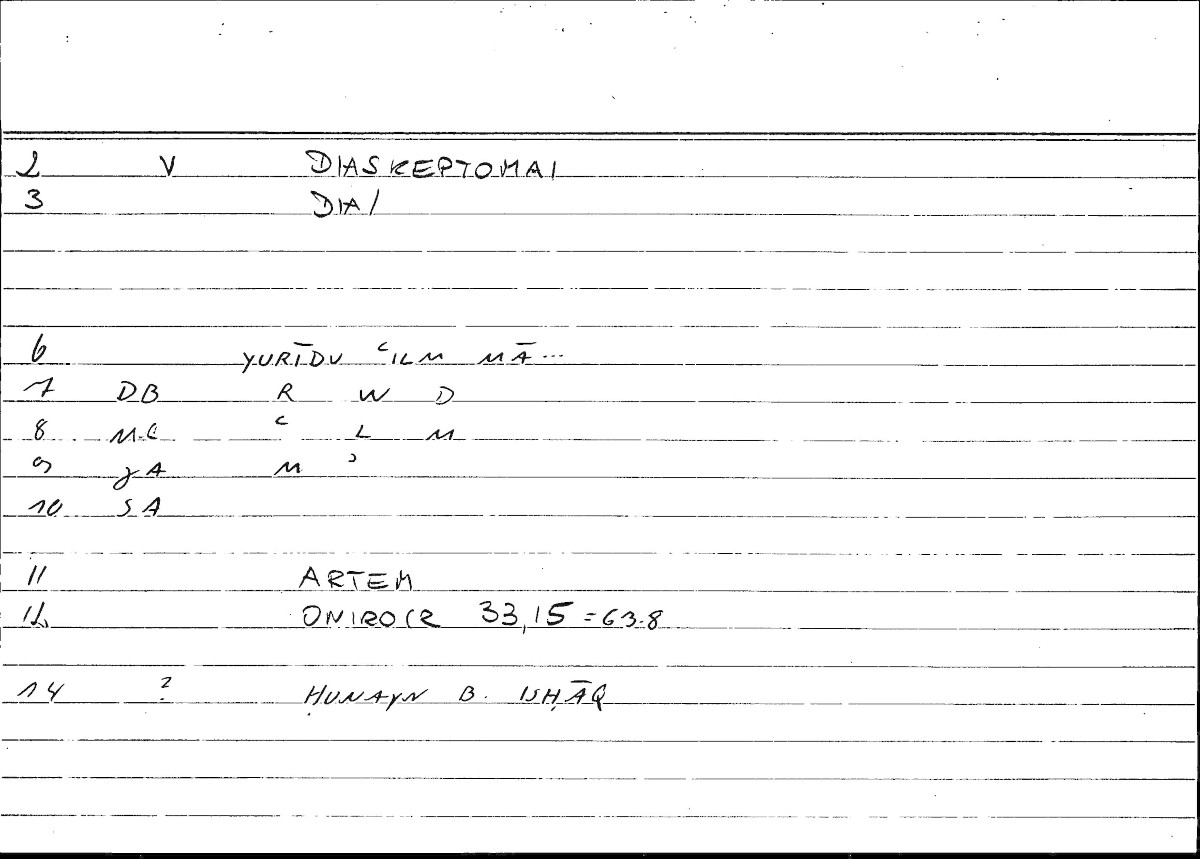 2 V DIASKEPTOMAI
3 DIA/
6 YURĪDU ʿILM MĀ...
7 DB R W D
8 MC ʿ L M
9 JA M ʾ
10 SA
11 ARTEM
12 ONIROCR 33,15 = 63.8
14 ? ḤUNAYN B. ISḤĀQ